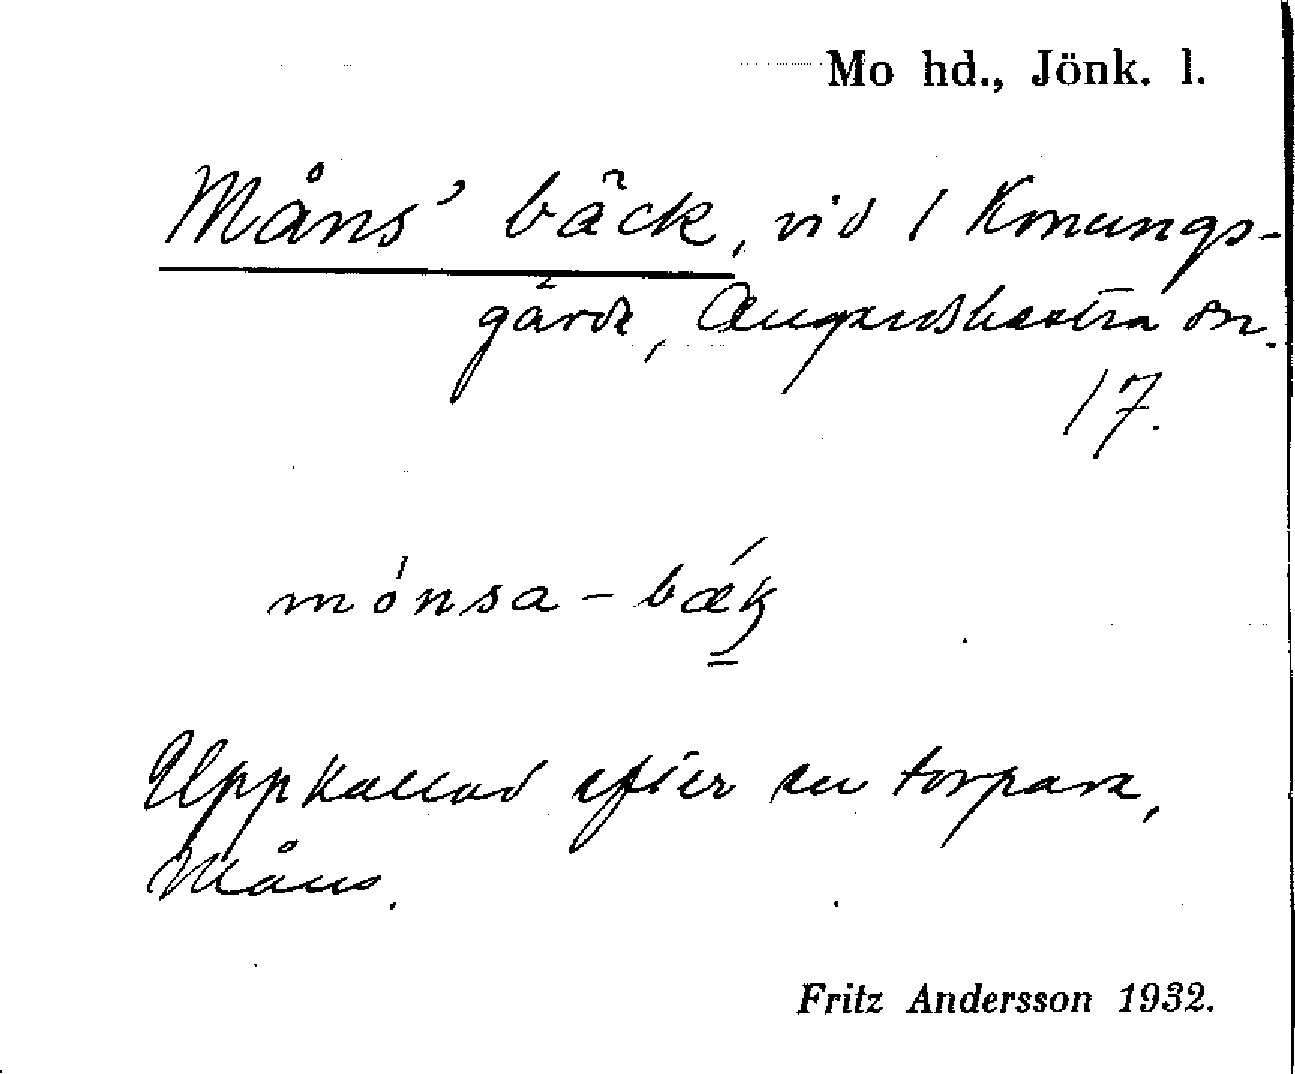 Mo hd., Jönk. l.
Måns' bäck, vid 1 Konungs-
gärde, on.
17.
mónsa-bǽk
Uppkallad efter en torpare,
Måns.
Fritz Andersson 1932.